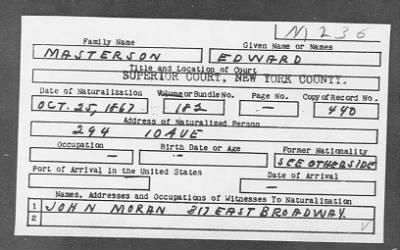 M 236
Family Name Given Name or Names
MASTERSON EDWARD
Title and Location of Court
SUPERIOR COURT, NEW YORK COUNTY.
Date of Naturalization Volume or Bundle No. Page No. Copy of Record No.
OCT. 25, 1867 182 — 440
Address of Naturalized Person
294 10 AVE
Occupation Birth Date or Age Former Nationality
— — SEE OTHERSIDE
Port of Arrival in the United States Date of Arrival
— —
Names, Addresses and Occupations of Witnesses To Naturalization
1 JOHN MORAN 317 EAST BROADWAY.
2